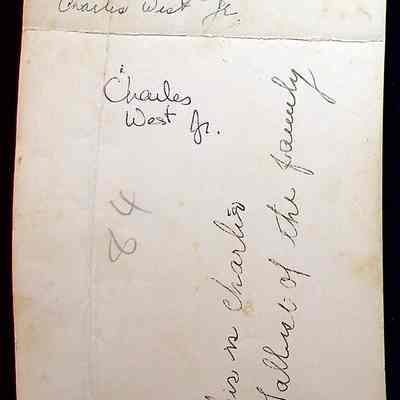 Charles West Jr.
Charles
West Jr.
84
is is Charlie
Tallest of the family